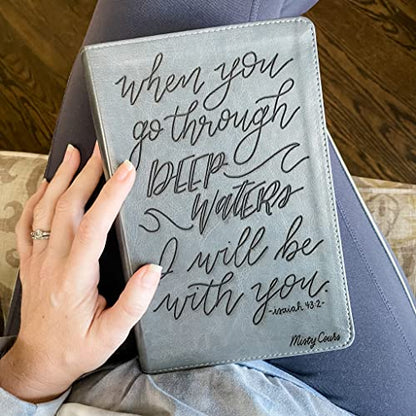 when you
go through
DEEP
WATERS
I will be
with you.
-isaiah 43:2-
Misty Couts